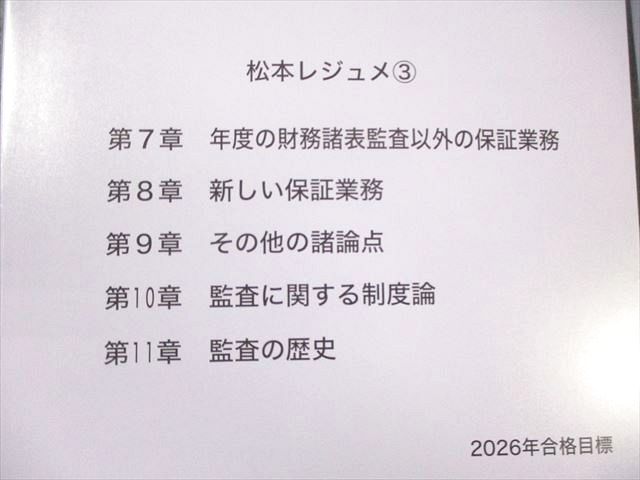 松本レジュメ③
第７章　年度の財務諸表監査以外の保証業務
第８章　新しい保証業務
第９章　その他の諸論点
第10章　監査に関する制度論
第11章　監査の歴史
2026年合格目標